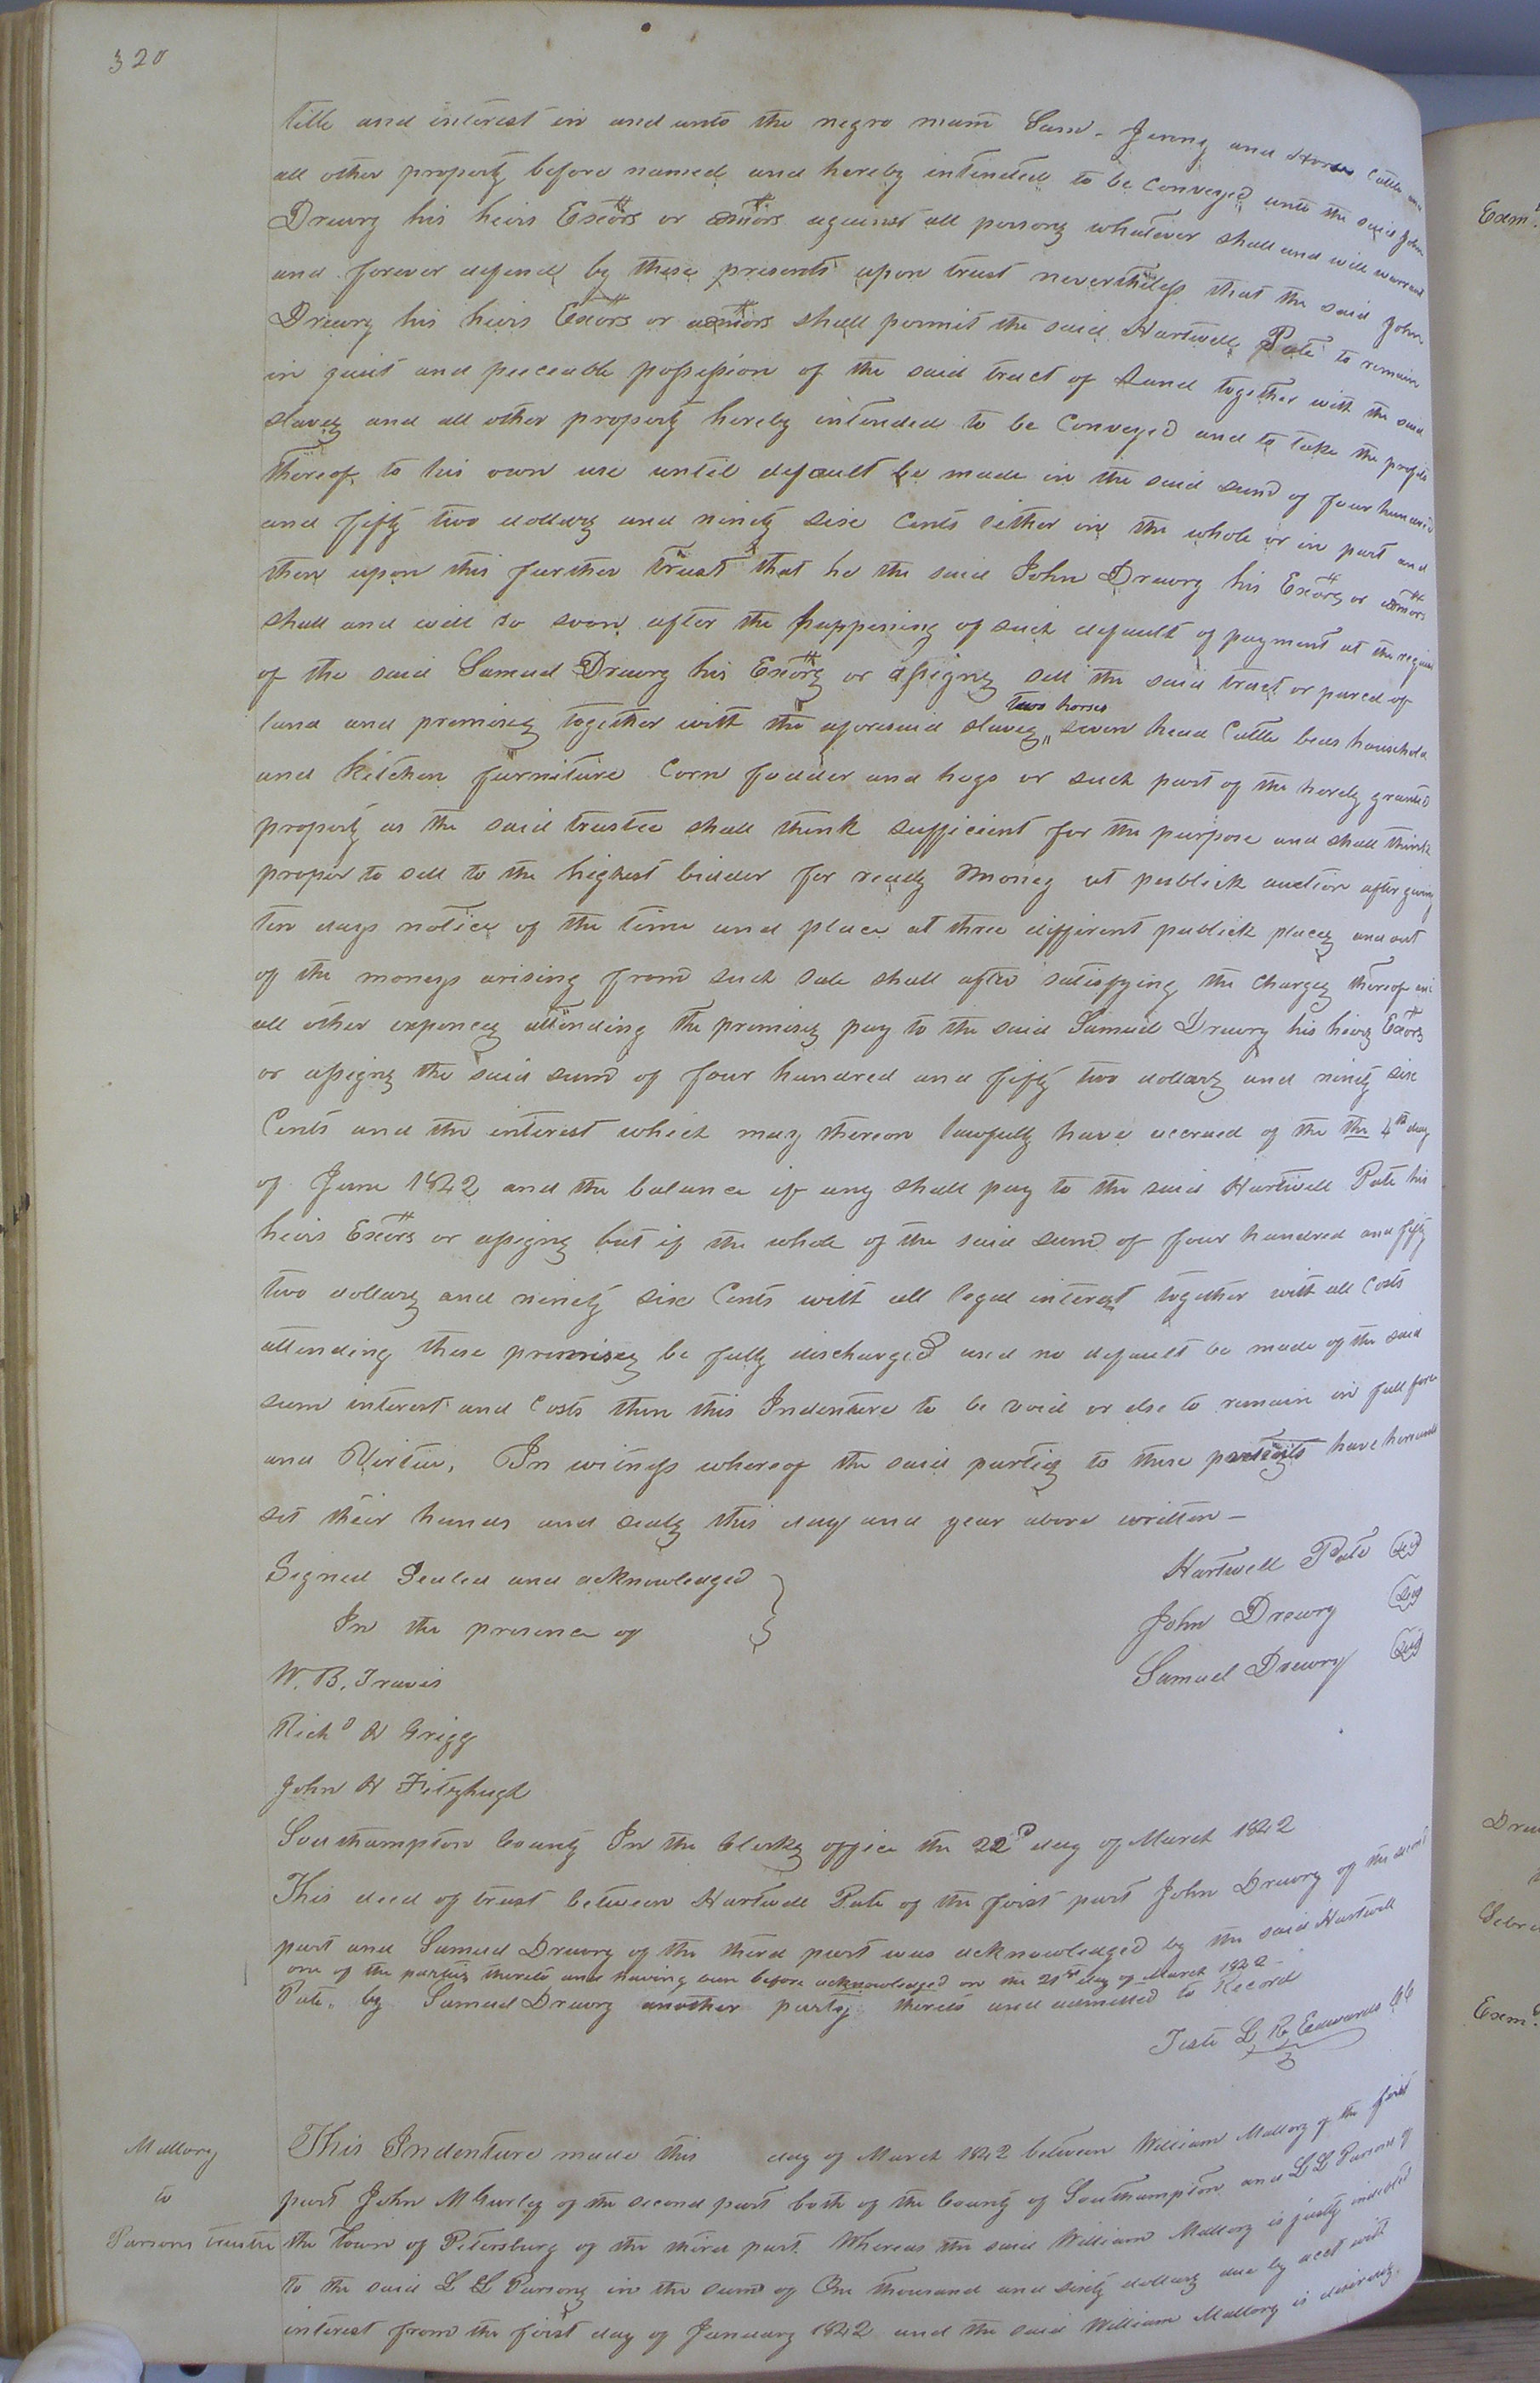 320
title and interest in and unto the negro mann Sam - Jenny and Horses Cattle and
all other property before named and hereby intended to be Conveyed unto the said John
Drewry his heirs Exors or admors against all persons whatever shall and will warrant
and forever defend by these presents upon trust nevertheless that the said John
Drewry his heirs Exors or admors shall permit the said Hartwell Pate to remain
in quiet and peaceable possession of the said tract of Land together with the said
slaves and all other property hereby intended to be Conveyed and to take the profits
thereof to his own use until default be made in the said sum of four hundred
and fifty two dollars and ninety six Cents either in the whole or in part and
then upon this further trust that he the said John Drewry his Exors or admors
shall and will so soon after the happening of such default of payment at the request
of the said Samuel Drewry his Exors or assigns sell the said tract or parcel of
two horses
land and premises together with the aforesaid slaves " seven head Cattle beds household
and kitchen furniture Corn fodder and hogs or such part of the hereby granted
property as the said trustee shall think sufficient for the purpose and shall think
proper to sell to the highest bidder for ready money at publick auction after giving
ten days notice of the time and place at three different publick places and out
of the moneys arising from such sale shall after satisfying the charges thereof and
all other expences attending the premises pay to the said Samuel Drewry his heirs Exors
or assigns the said sum of four hundred and fifty two dollars and ninety six
Cents and the interest which may thereon lawfully have accrued of the the 4th day
of June 1842 and the balance if any shall pay to the said Hartwell Pate his
heirs Exors or assigns but if the whole of the said sum of four hundred and fifty
two dollars and ninety six Cents with all legal interest together with all costs
attending these premises be fully discharged and no default be made of the said
sum interest and Costs then this Indenture to be void or else to remain in full force
and Virtue, In witness whereof the said parties to these have hereunto
set their hands and seals this day and year above written -
Signed Sealed and acknowledged
In the presence of
Hartwell Pate
John Drewry
Samuel Drewry
W. B. Travis
Richd H Grigg
John H Fitzhugh
Southampton County In the Clerks office the 22d day of March 1842
This deed of trust between Hartwell Pate of the first part John Drewry of the second
part and Samuel Drewry of the third part was acknowledged by the said Hartwell
one of the parties thereto and having been before acknowledged on the 21st day of March 1842
Pate " by Samuel Drewry another party thereto and admitted to Record
Teste L R Edwards CC
Mallory
to
Parsons trustee
This Indenture made this day of March 1842 between William Mallory of the first
part John M Gurley of the second part both of the County of Southampton and L L Parsons of
the Town of Petersburg of the third part. Whereas the said William Mallory is justly indebted
to the said L L Parsons in the sum of One thousand and sixty dollars due by acct with
interest from the first day of January 1842 and the said William Mallory is
Exm
Exm